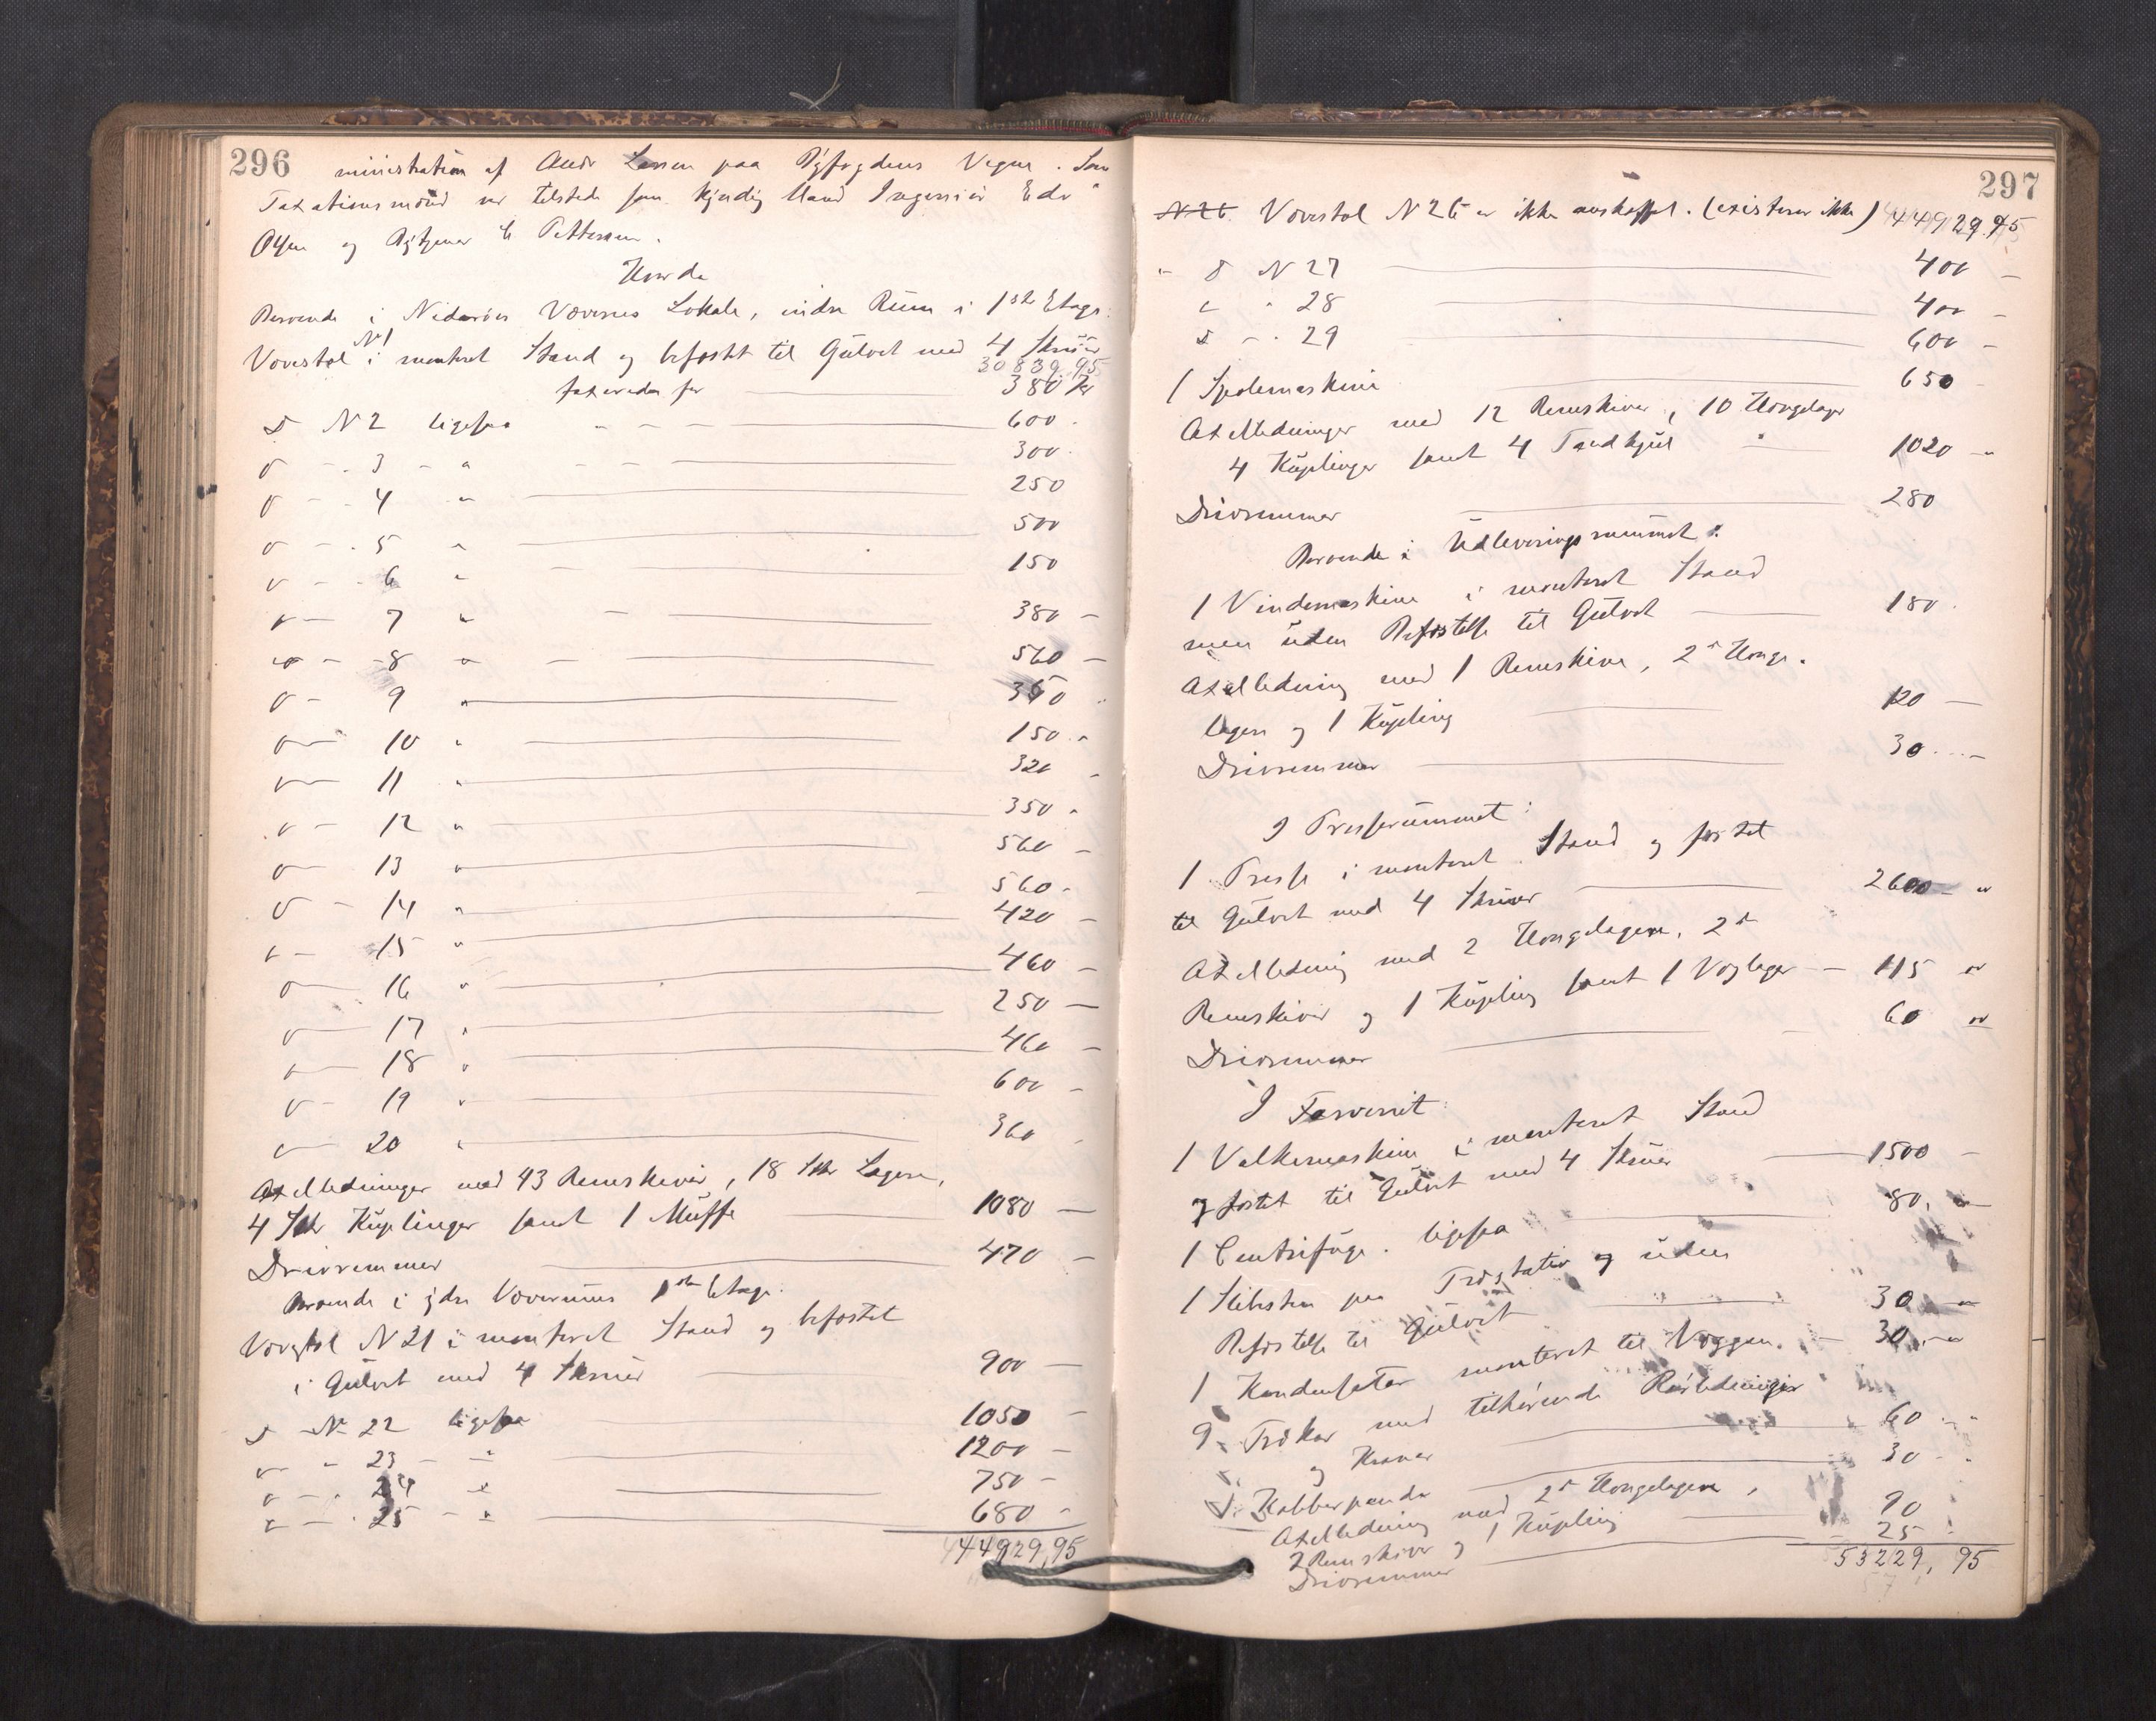 296
ministration af Andr Larsen paa Byfogdens Vegne. Som
Taxationsmænd var tilstede som kyndig Mand Ingeniør Edv
Olsen og Bytjener C. Pettersen.
Beroende i Nidarøs Væveries Lokale, indre Rum i 1ste Etage:
Vævestol No 1 i monteret Stand og befæstet til Gulvet med 4 Skruer
30839,95
taxeredes for 380 Kr
d N 2 ligesaa 600
d 3 " 300
d 4 " 250
d 5 " 500
d 6 " 150
d 7 " 380 –
d 8 " 560 –
d 9 " 350
d 10 " 150
d 11 " 320 –
d 12 " 350
d 13 " 560 –
d 14 " 560
d 15 " 420 –
d 16 " 460 –
d 17 " 250 –
d 18 " 460 –
d 19 " 600 –
d 20 " 360
Axelledninger med 43 Remskiver, 18 Stk Lagere,
4 Stk Kuplinger samt 1 Muffe 1080 –
Drivremmer 470 –
Beroende i ydre Væverums 1ste Etage.
Vævstol N 21 i monteret Stand og befæstet
i Gulvet med 4 Skruer 900 –
d N 22 ligesaa 1050 –
d " 23 " 1200 –
d " 24 " 750 –
d " 25 " 680 –
44929,95
297
N 26. Vævestol N 26 er ikke anskaffet. (existerer ikke) 44929.95
" d N 27 400 –
" " 28 400 –
d " 29 600 –
1 Spolemaskine 650
Axelledninger med 12 Remskiver, 10 Hængelager
4 Kuplinger samt 4 Tandhjul 1020 –
Drivremmer 280
Beroende i Udleveringsrummet:
1 Vindemaskine i monteret Stand
men uden Befæstelse til Gulvet 180
Axelledning med 1 Remskive, 2 Hænge-
lagere og 1 Kupling 120 –
Drivremmer 30 –
I Presserummet:
1 Presse i monteret Stand og fæstet
til Gulvet med 4 Skruer 2600 –
Axelledning med 2 Hængelagere, 2
Remskiver og 1 Kupling samt 1 Væglager – 115
Drivremmer 60
I Farveriet:
1 Valkemaskine i monteret Stand
og fæstet til Gulvet med 4 Skruer 1500 –
1 Centrifuge. ligesaa 80,
1 Slibesten paa Træstativ og uden
Befæstelse til Gulvet 30
1 Kondensator monteret til Væggen. – 30
9 Trækar med tilhørende Rørledninger
og Kraner 60
Kobberpande 30
Axelledning med 2 Hængelagere,
2 Remskiver og 1 Kupling 90
Drivremmer 25
53229,95